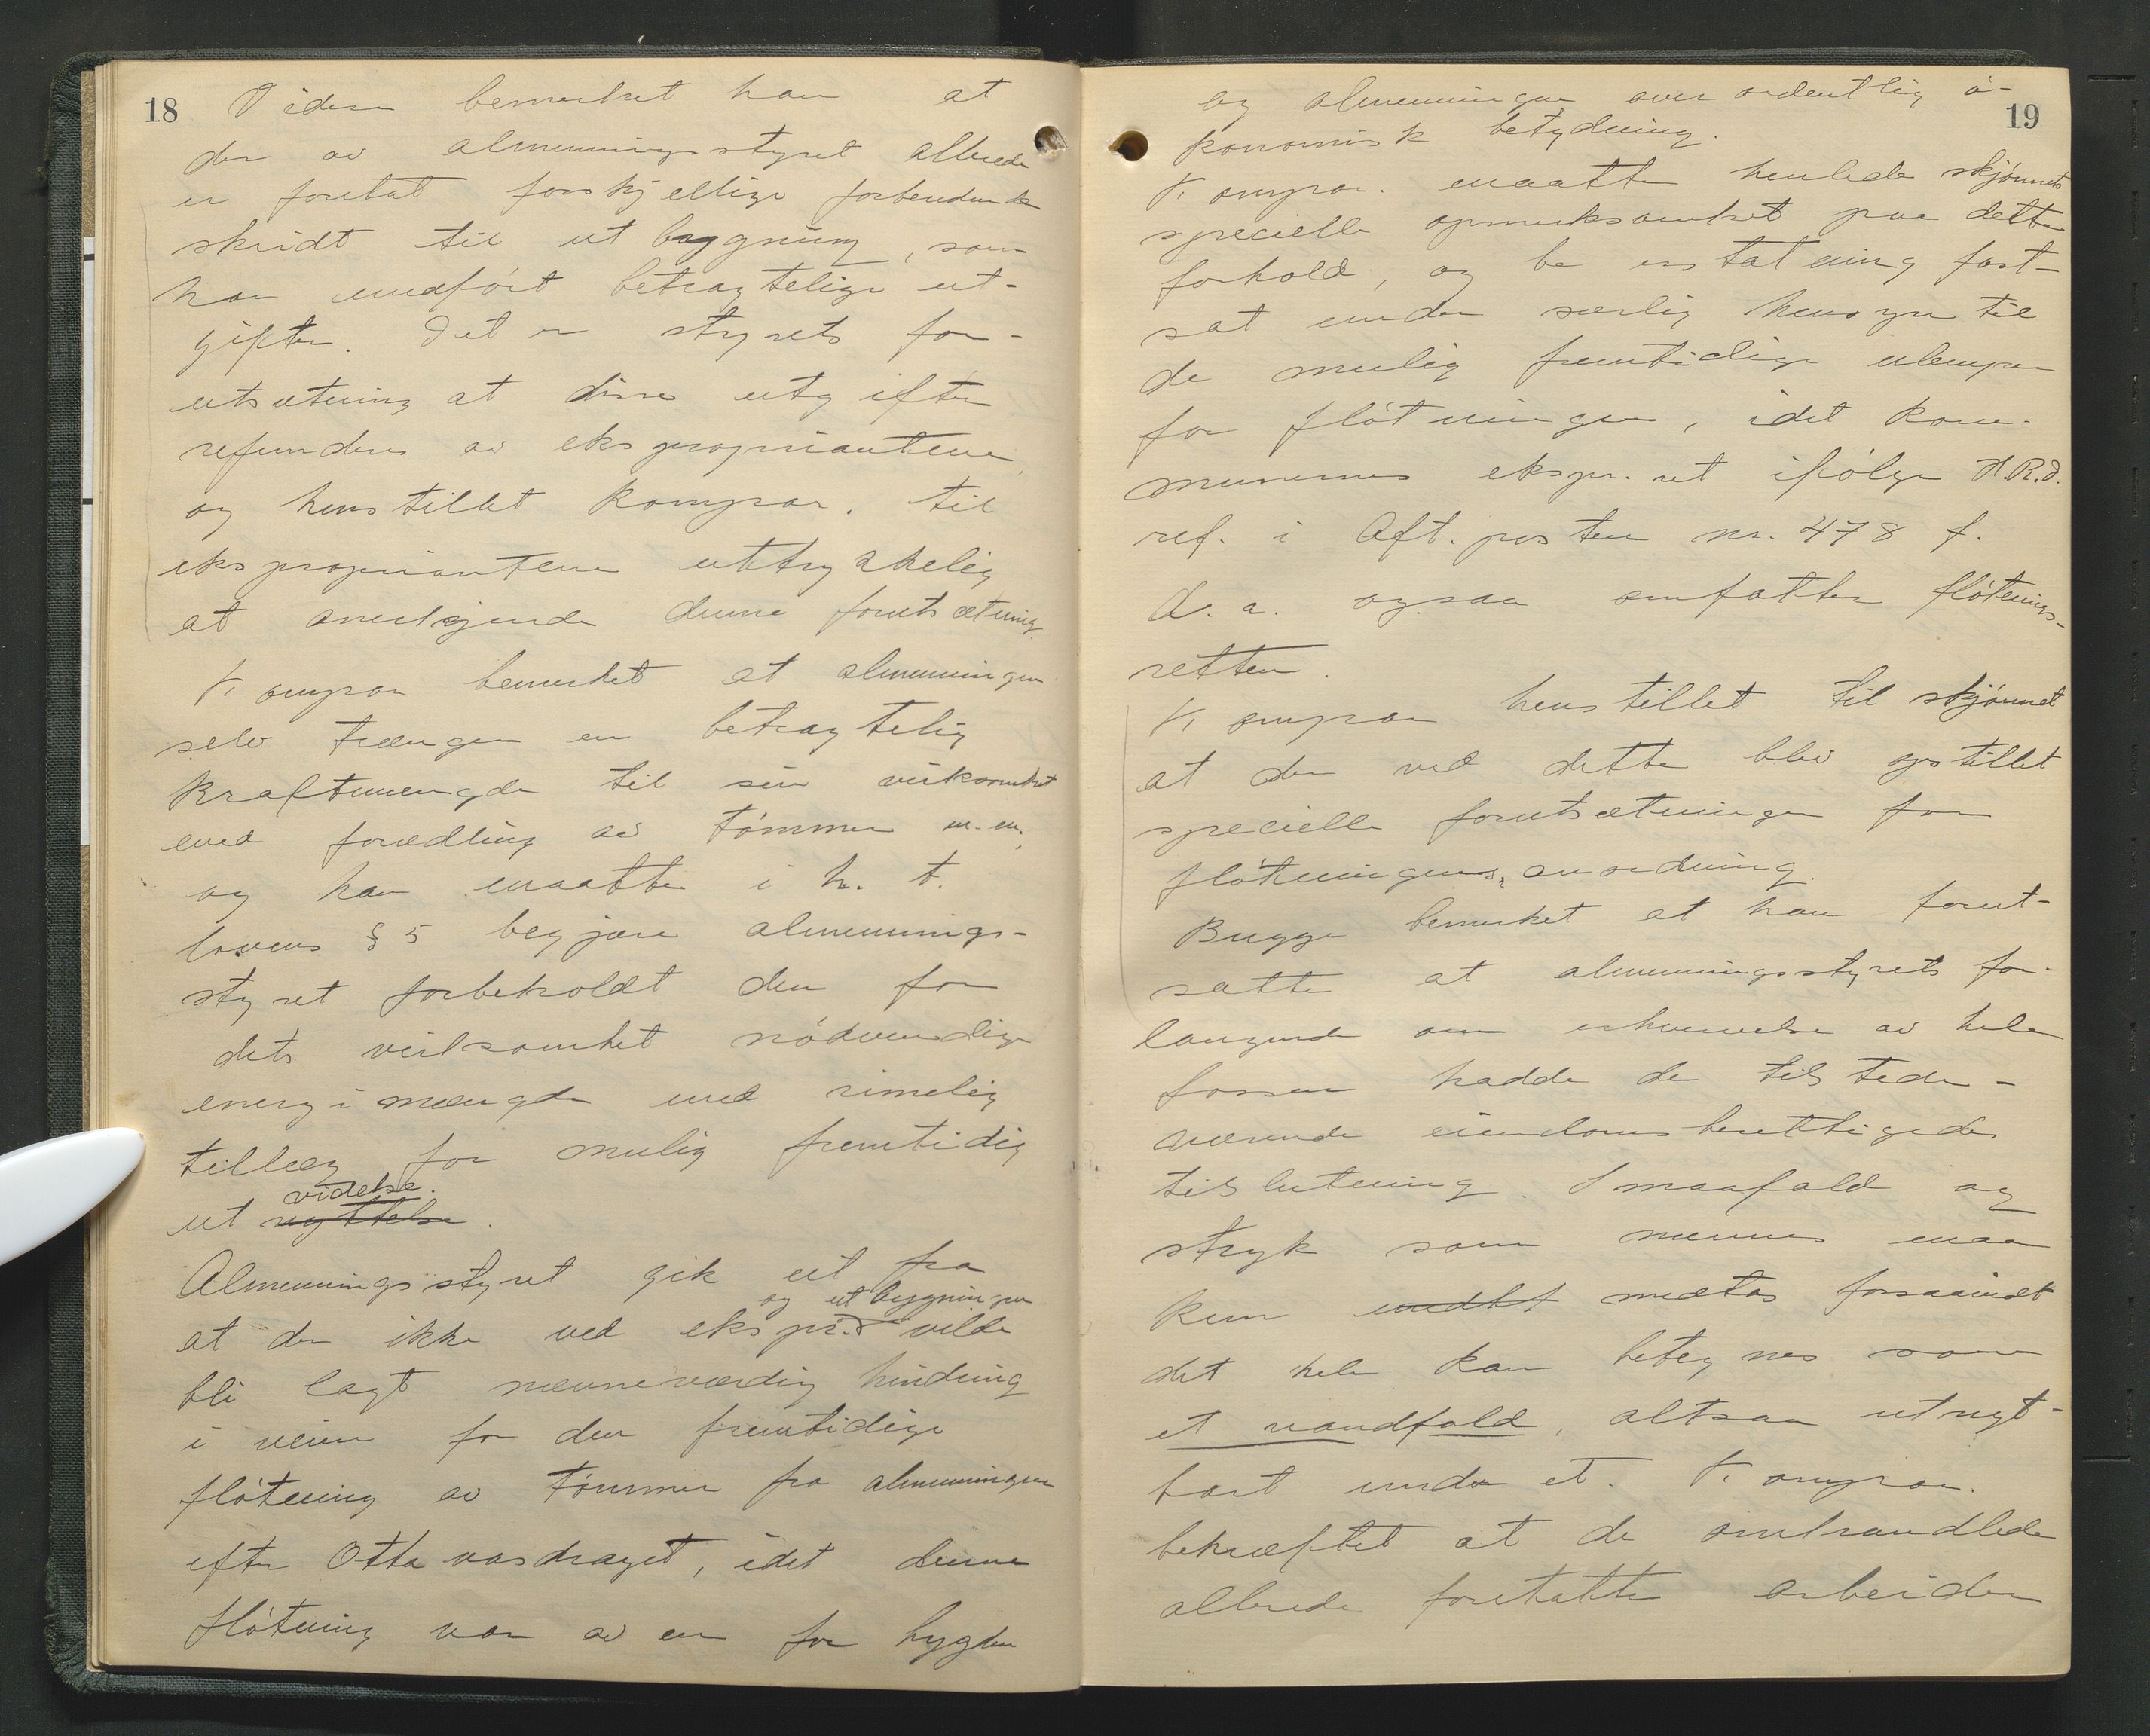 18
Videre bemerket han at
der av almenningsstyret allerede
er foretat forskjellige forberedende
skridt til utbygning, som
har medført betragtelige ut-
gifter. Det er styrets for-
utsætning at disse utgifter
refunderes av ekspropriantene,
og henstillet kompar. til
ekspropriantene uttrykkelig
at anerkjende denne forutsætning.
Kompar bemerket at almenningen
selv trænger en betragtelig
kraftmængde til sin virksomhet
med forædling av tømmer m.m.,
og han maatte i h. t.
lovens § 5 begjære almennings-
styret forbeholdt den for
dets virksomhet nødvendige
energimængde med rimelig
tillæg for mulig fremtidig
videlse.
ut nyttelse.
Almenningsstyret gik ut fra
og utbygningen
at der ikke ved ekspr. vilde
bli lagt nævneværdig hindring
i veien for den fremtidige
fløtning av tømmer fra almenningen
efter Otta vasdraget, idet denne
fløtning var av en for bygden
19
og almenningen overordentlig ø-
konomisk betydning.
Kompar. maatte henlede skjønnets
specielle opmerksomhet paa dette
forhold, og be erstatning fast-
sat under særlig hensyn til
de mulig fremtidige ulemper
for fløtningen, idet kom-
munernes ekspr. ret ifølge H.R.D.
ref. i Aft.posten nr. 478 f.
d. a. ogsaa omfatter fløtnings-
retten.
Kompar henstillet til skjønnet
at der ved dette blev opstillet
specielle forutsætninger for
fløtningens anordning.
Bugge bemerket at han forut-
satte at almenningsstyrets for-
langende om erhvervelse av hele
fossen hadde de tilstede-
værende eiendomsberettigedes
tilslutning. Smaafald og
stryk som nævnes maa
kun medt medtas forsaavidt
det hele kan betegnes som
et vandfald, altsaa utnyt-
bart under et. Kompar.
bekræftet at de omhandlede
allerede foretatte arbeider